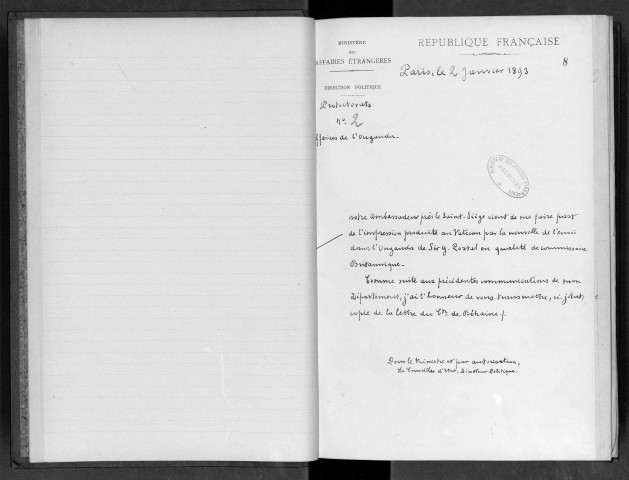 MINISTÈRE
des
AFFAIRES ÉTRANGÈRES
DIRECTION POLITIQUE
Protectorats
N° 2
ffaires de l'Ouganda.
REPUBLIQUE FRANÇAISE
8
Paris, le 2 Janvier 1893
Notre Ambassadeur près le Saint-Siège vient de me faire part
de l'impression produite au Vatican par la nouvelle de l'envoi
dans l'Ouganda de Sir G. Portal en qualité de commissaire
Britannique.
Comme suite aux précédentes communications de mon
Département, j'ai l'honneur de vous transmettre, ci-joint,
copie de la lettre du Cte de Béhaine./.
Pour le Ministre et par autorisation,
Le Conseiller d'Etat, Directeur Politique.